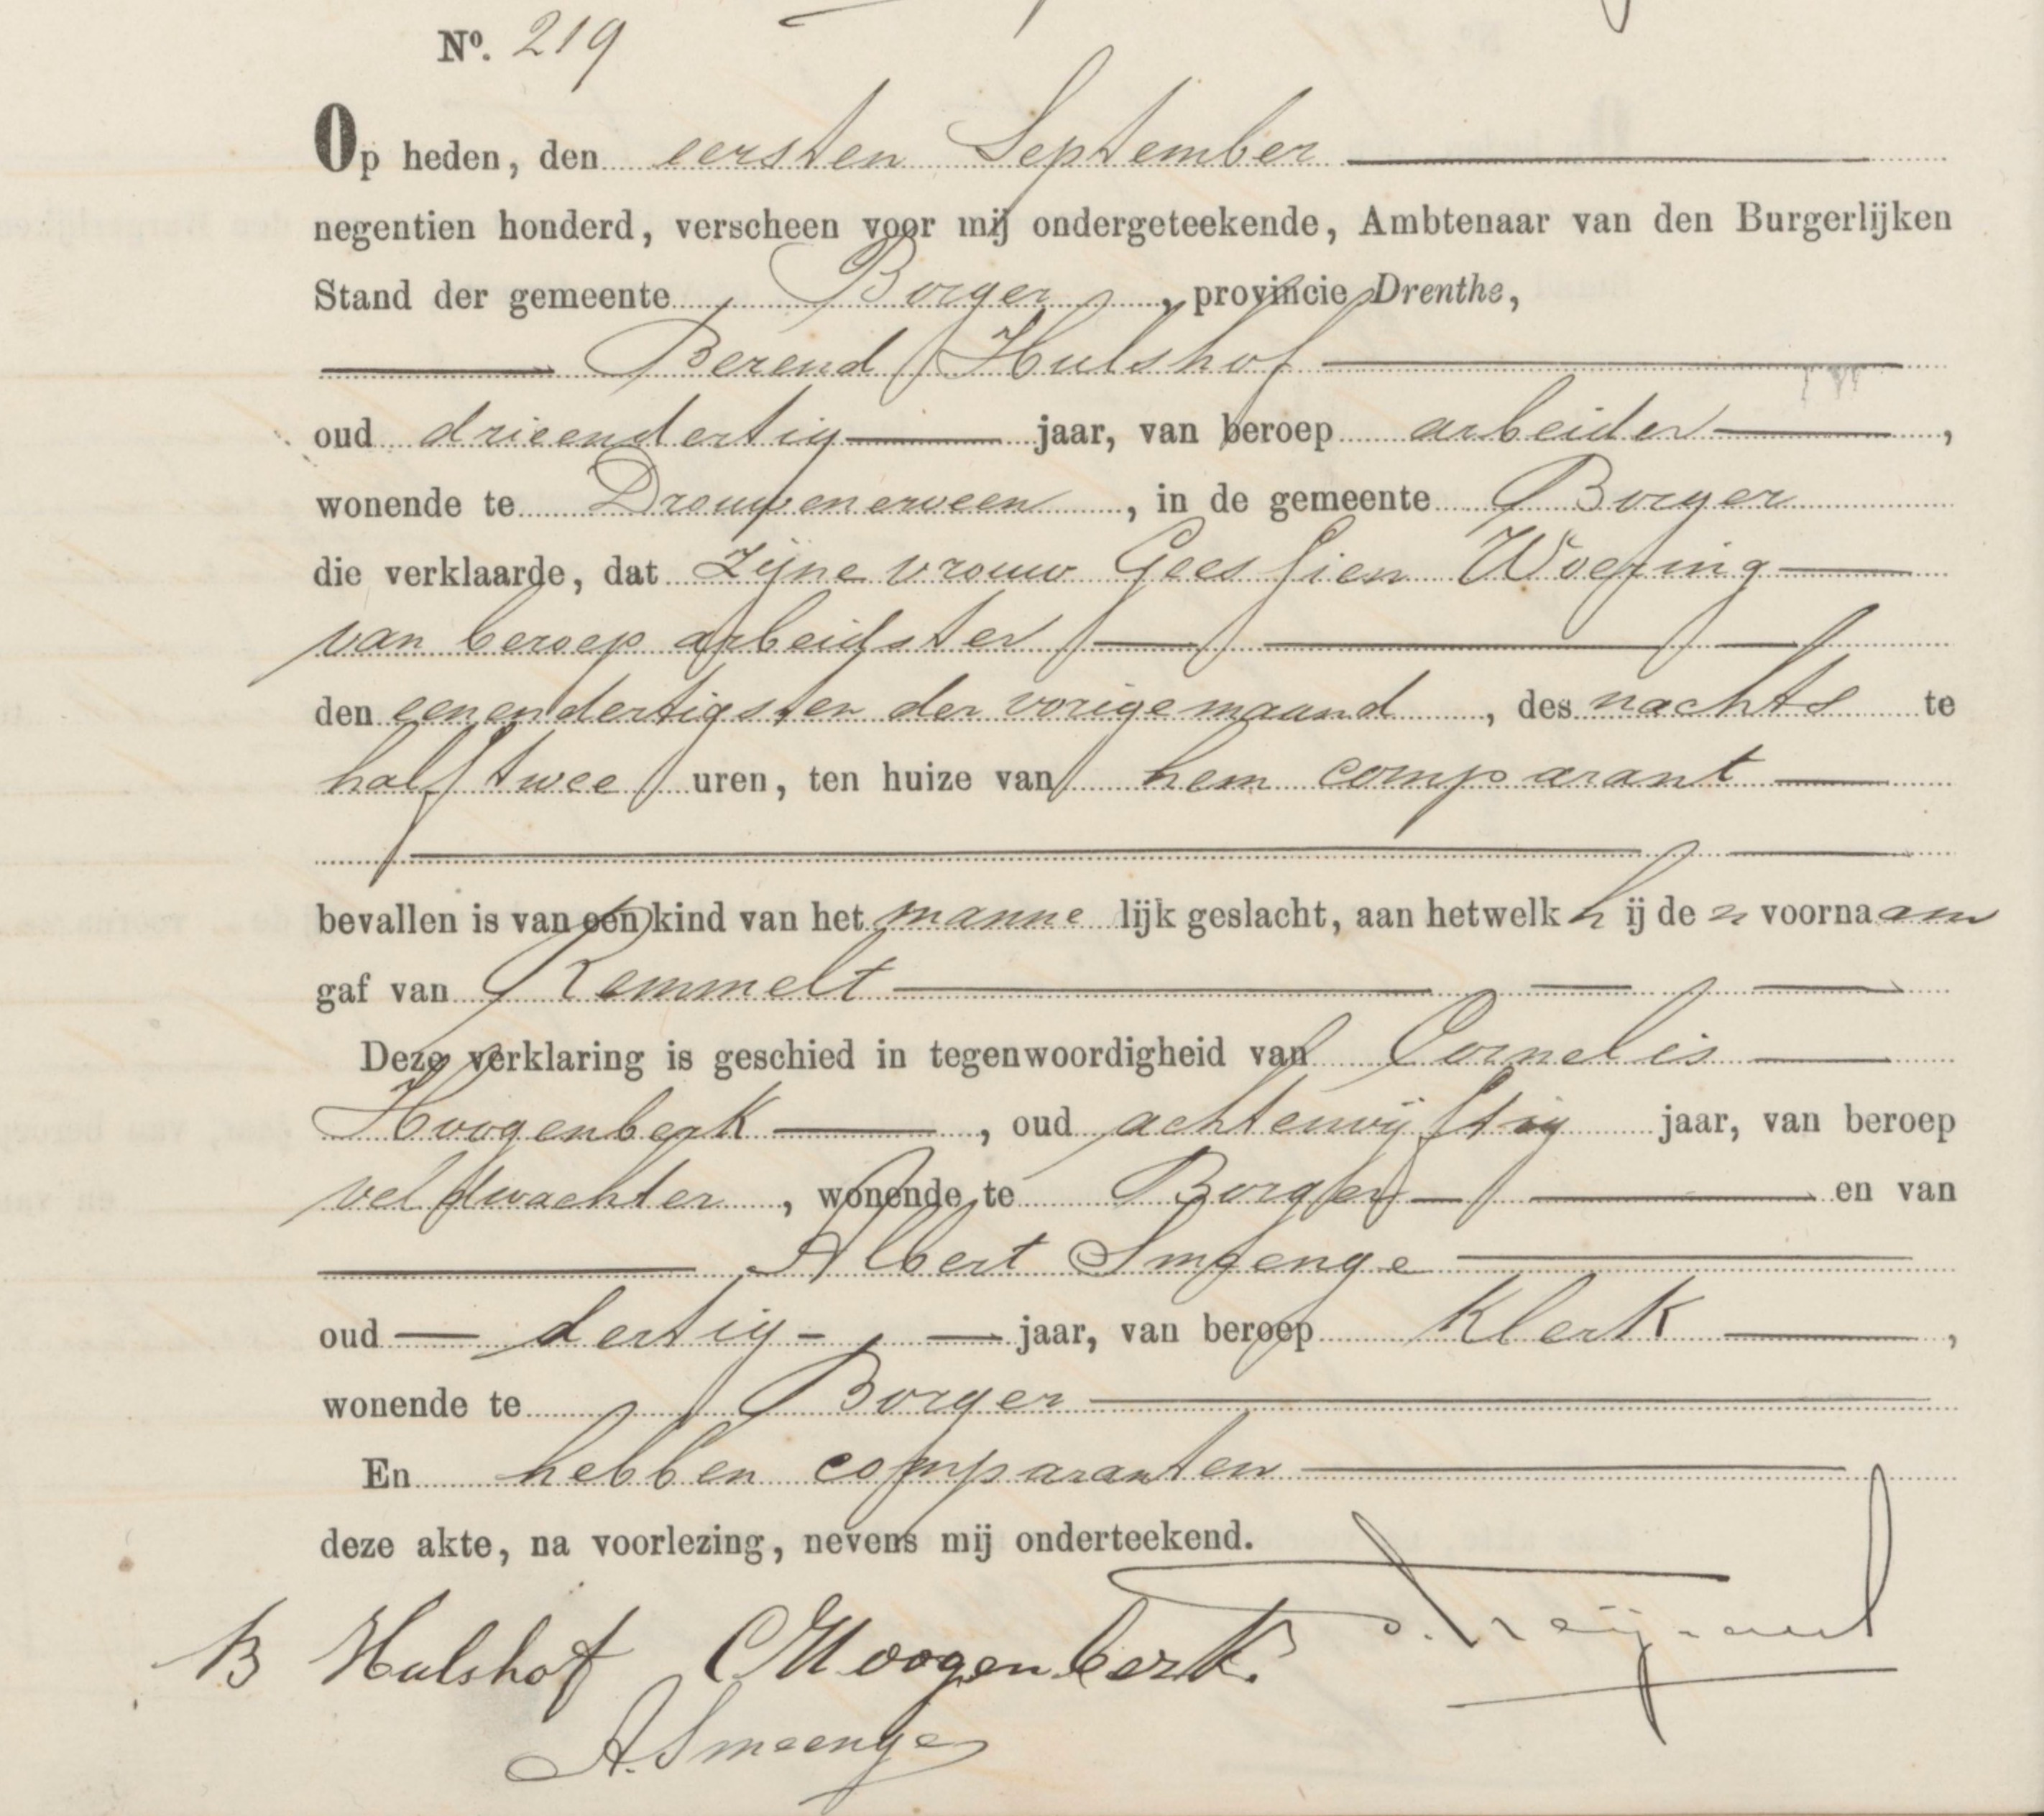 Nº. 219
Op heden, den eersten September
negentien honderd, verscheen voor mij ondergeteekende, Ambtenaar van den Burgerlijken
Stand der gemeente Borger, provincie Drenthe,
Berend Hulshof
oud drieendertig jaar, van beroep arbeider,
wonende te Drouwenerveen, in de gemeente Borger
die verklaarde, dat zijne vrouw Geessien Woering
van beroep arbeidster
den eenendertigsten der vorige maand, des nachts te
half twee uren, ten huize van hem comparant
bevallen is van een kind van het mannelijk geslacht, aan hetwelk hij den voornaam
gaf van Remmelt
Deze verklaring is geschied in tegenwoordigheid van Cornelis
Hoogenberk, oud achtenvijftig jaar, van beroep
veldwachter, wonende te Borger en van
Albert Smeenge
oud dertig jaar, van beroep klerk,
wonende te Borger
En hebben comparanten
deze akte, na voorlezing, nevens mij onderteekend.
B Hulshof C Hoogenberk.
A. Smeenge